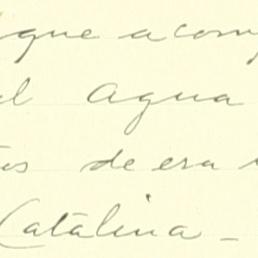 que acom
al agua
os de era
Catalina -